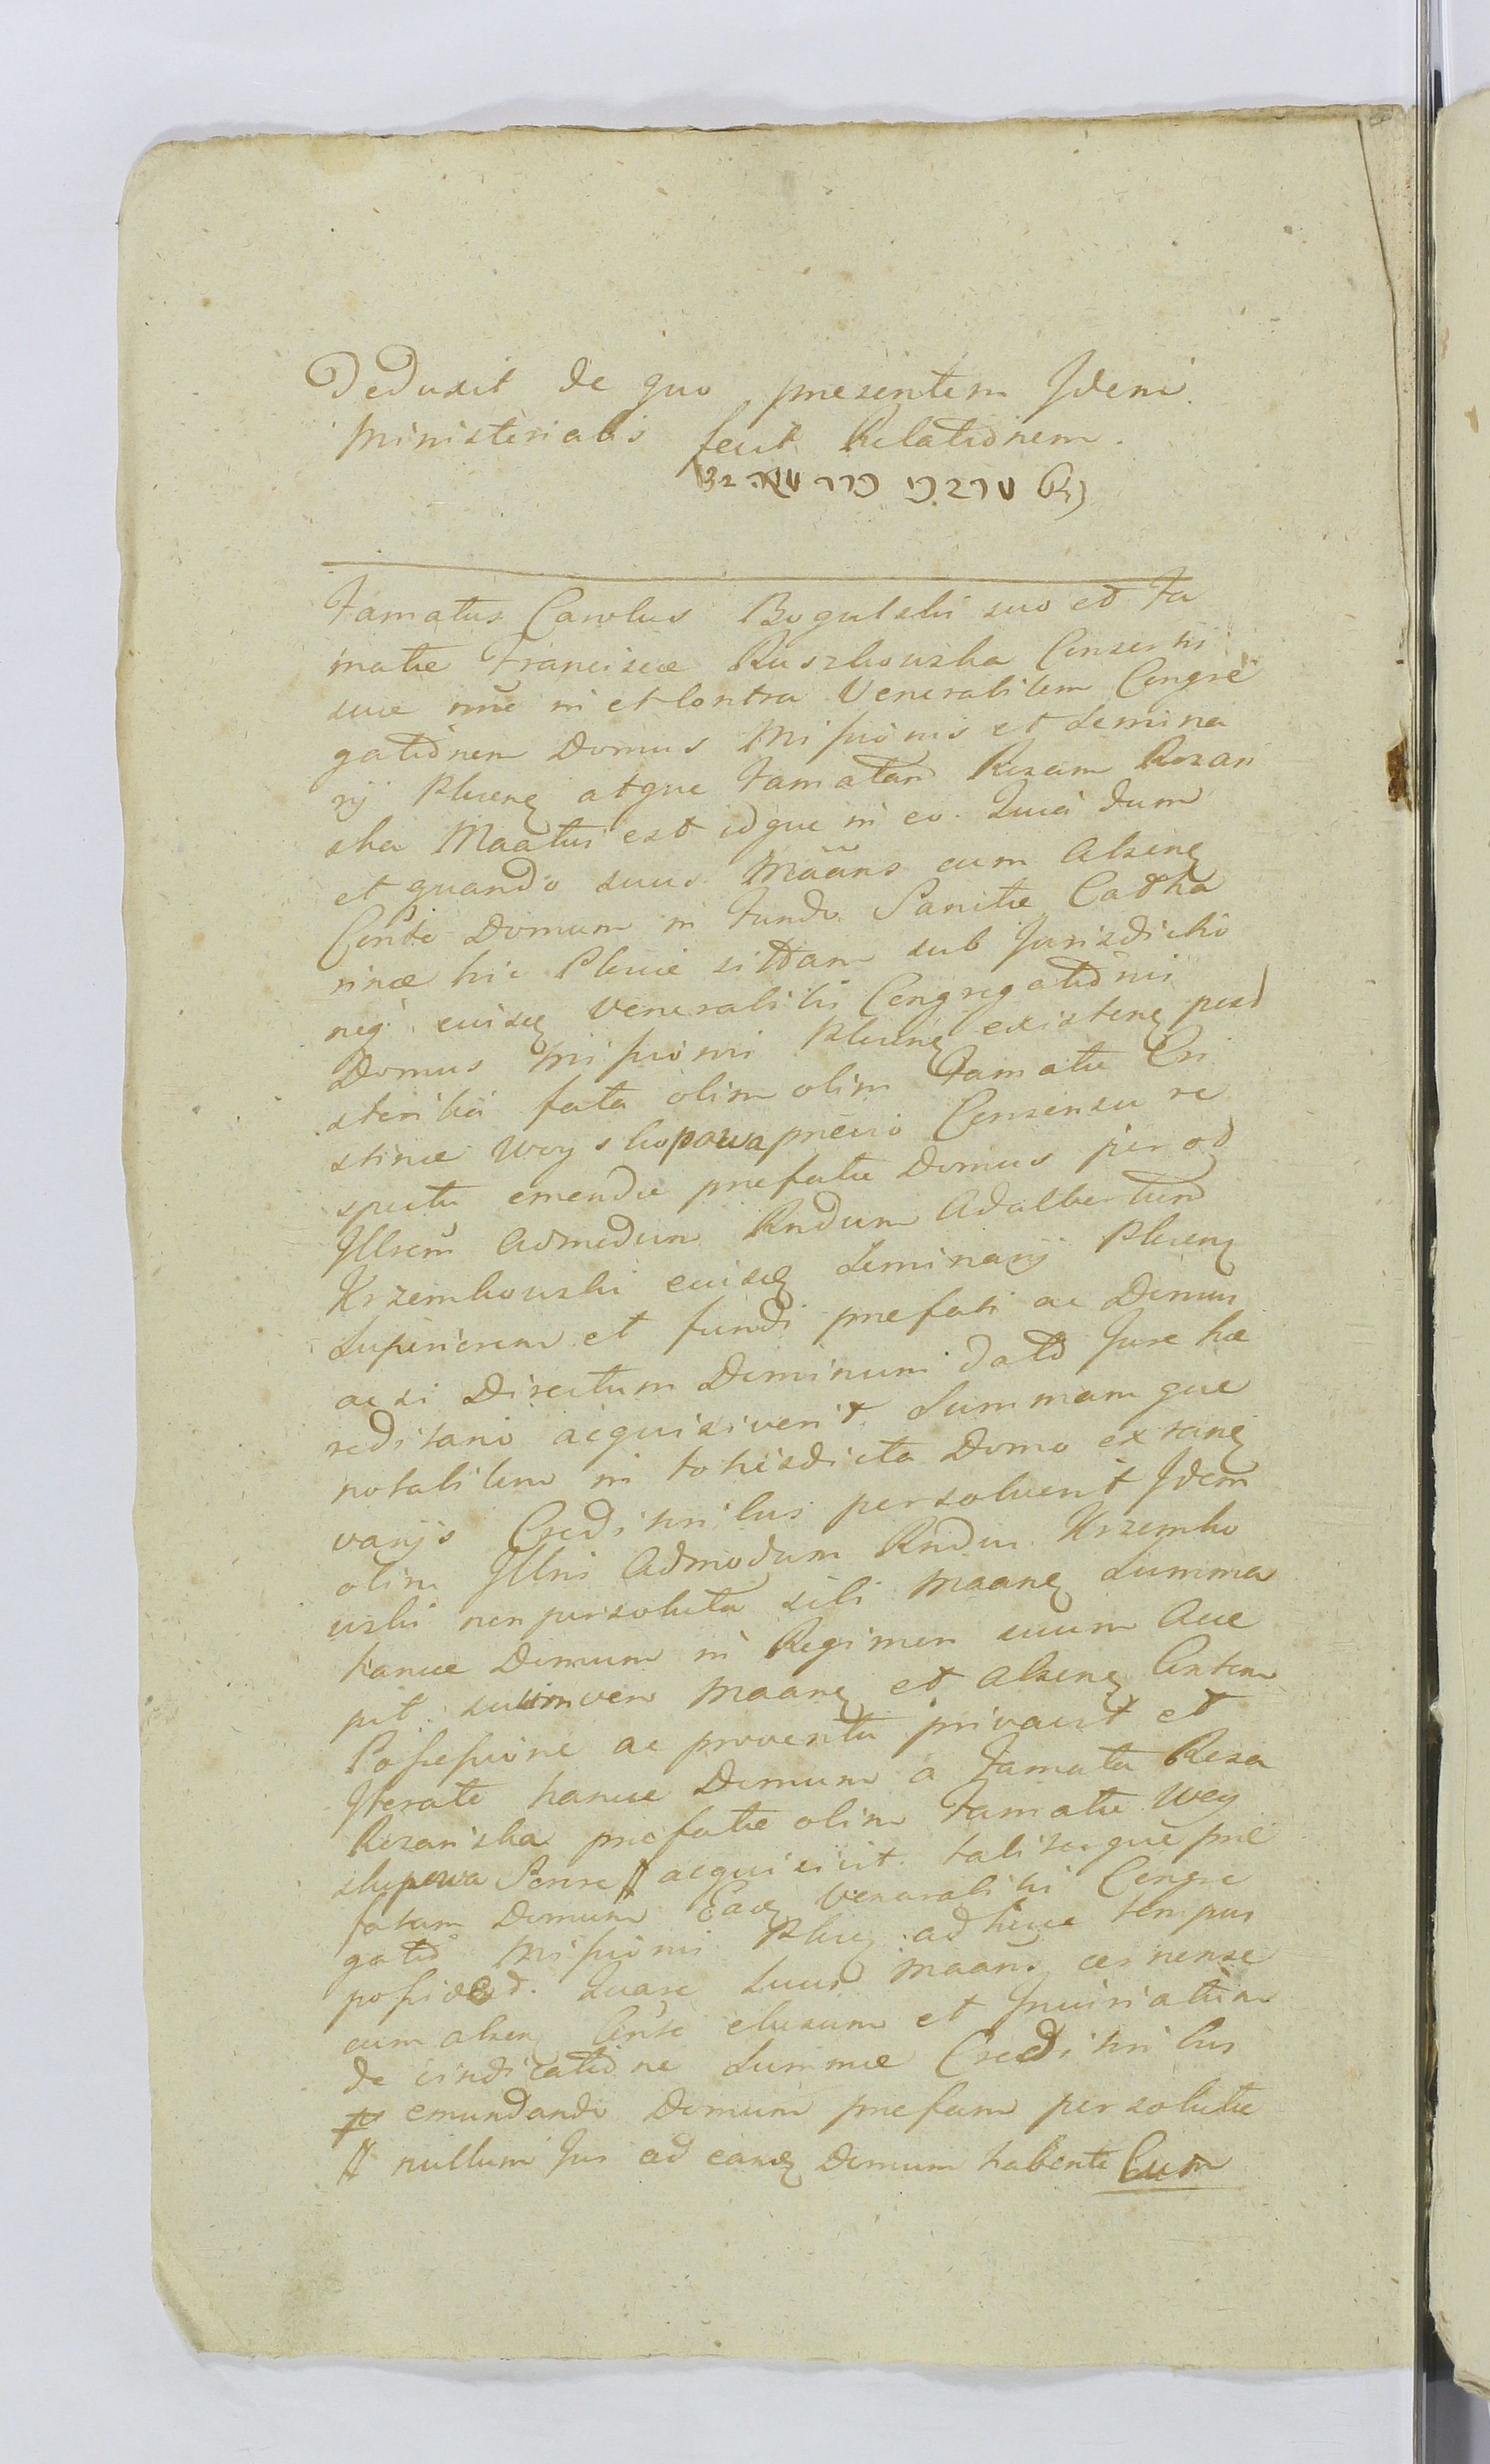 Deduxit de quo presentem Idem
Ministerialis fecit Relationem.
Famatus Carolus Bogulski suo et Fa
matæ Franciscæ Ruszkowska Consortis
suæ nne in et contra Venerabilem Congre
gationem Domus Missionis et Semina
rij Plocens atque Famatam Rozam Rozan
ska Maatus est idque in eo. Quia dum
et quando suus Maans cum Alsens
Conte Domum in Fundo Sanctæ Catha
rinæ hic Plociæ sittam sub Jurisdictio
ne eiusd Venerabilis Congregationis
Domus Missionis Plocens existens post
sterilia fata olim olim Famatæ Cri
stinæ Woyskopowa prævio Consensu re
spectu emendæ prefatæ Domus per od
Illrem Admodum Rndum Adalbertum
Krzembowski eiusd Seminarij Plocens
Superiorem et fundi prefati ac Domus
acsi Directum Dominum dato Jure hæ
reditario acquisiverit. Summamque
notabilem in totiesdicta Domo extans
varijs Creditoribus persolverit Idem
olim Illris Admodum Rndus Krzembo
wski non persoluta sibi Maans Summa
hancce Domum in Regimen suum Acce
pit. suum vero Maans et Alsens Contem
Possessione ac proventu privavit et
Iterate hancce Domum a Famata Roza
Rozanska prefatæ olim Famatæ Woy
skopowa Sorore # acquisivit. taliterque præ
fatam Domum Ead Venerabilis Congre
gatio Missionis Ploc. ad hucce tempus
possidet. Quare suus Maans cernense
cum alsen Conte elusum et Iniuriatum
de vindicatione Summæ Creditoribus
emundando Domum prefam persolutæ
# nullum Jus ad eand Domum habente Cum